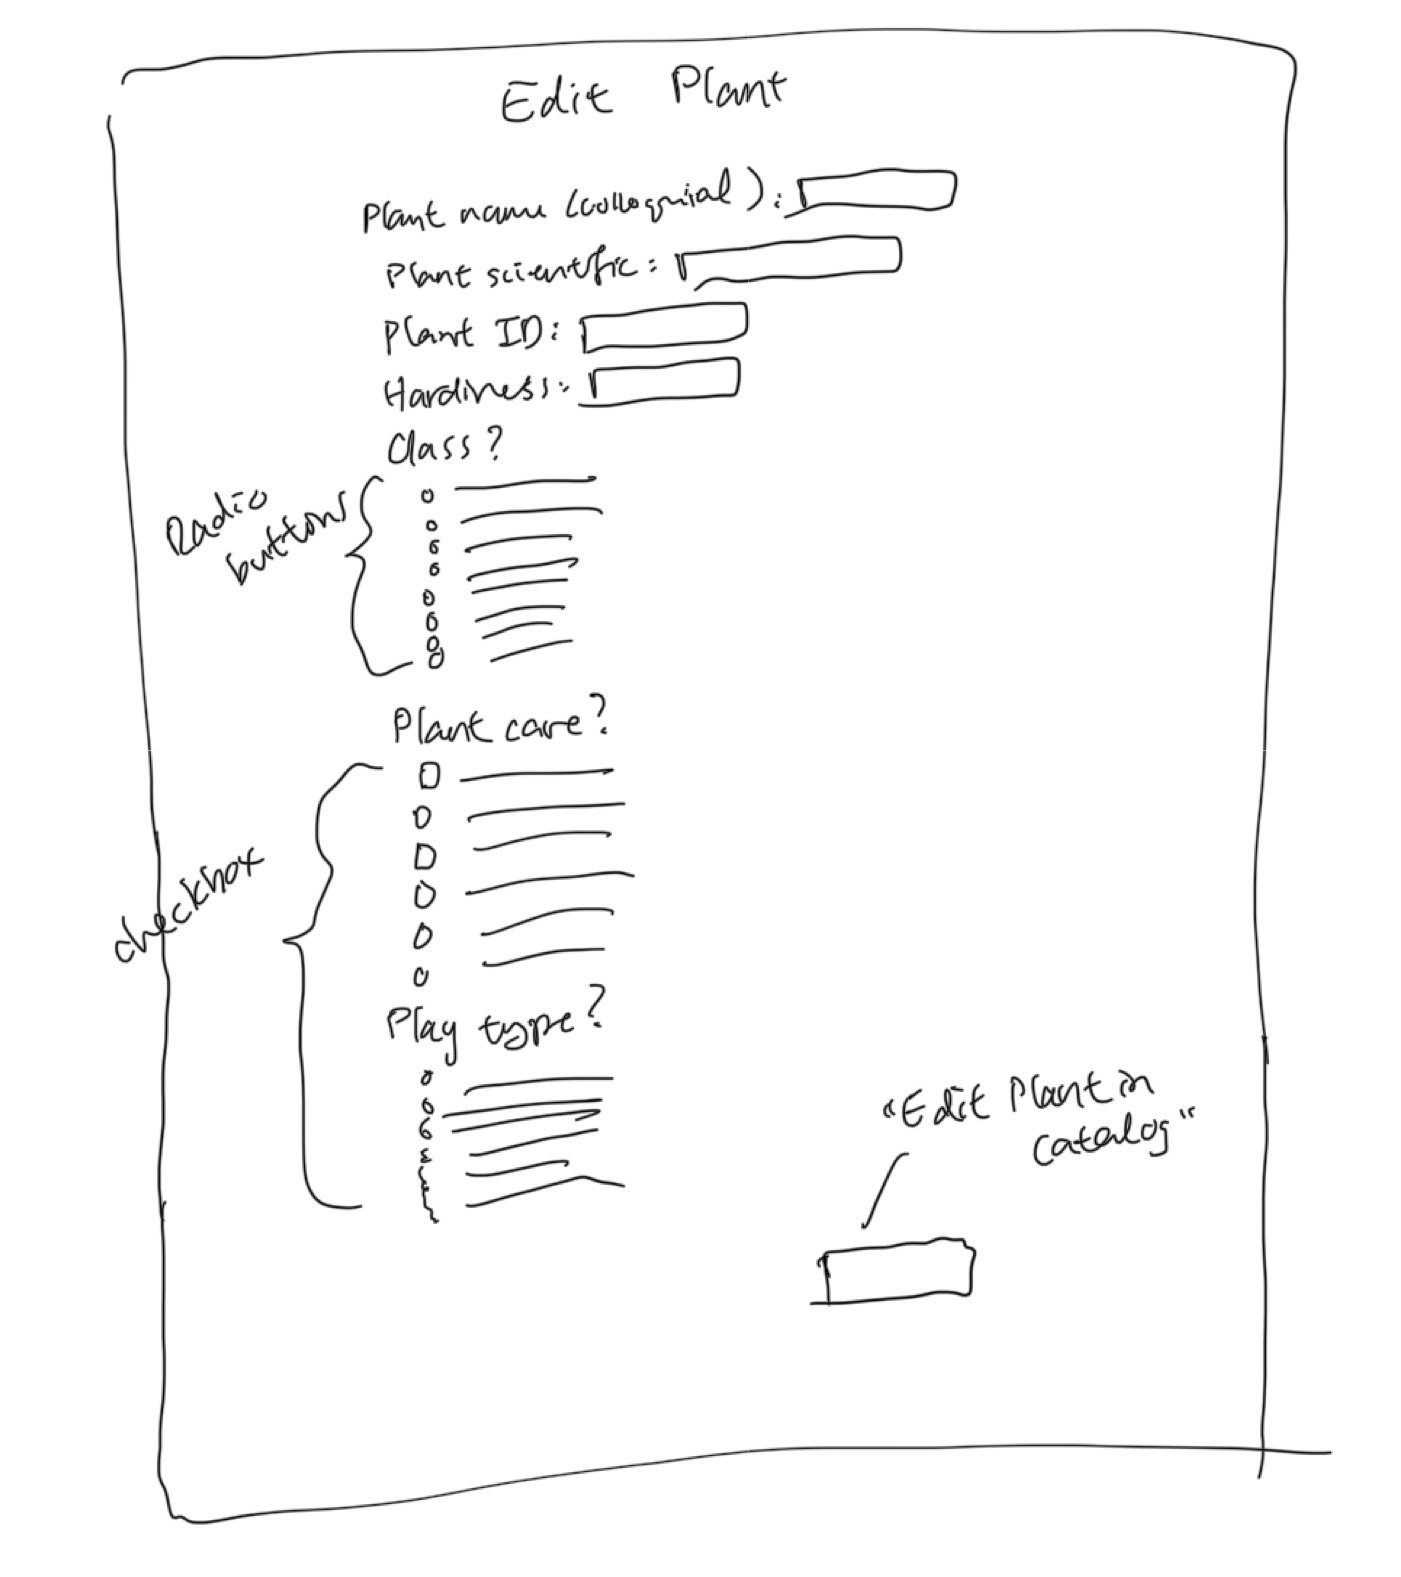 Edit Plant
Plant name (colloquial):
Plant scientific:
Plant ID:
Hardiness:
Class?
Radio
buttons
Plant care?
checkbox
Play type?
"Edit Plant in
catalog"